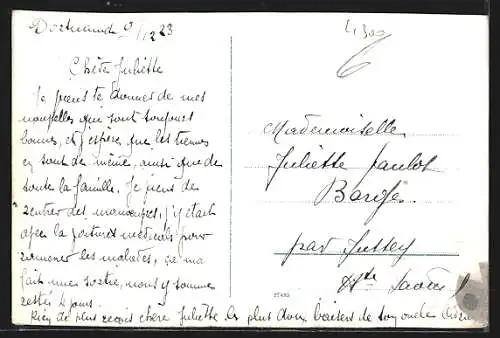 Dortmund 9/12 23
Chère Juliette
Je viens te donner de mes
nouvelles que sont toujours
bonnes, et j'espère que les tiennes
en sont de même, ainsi que de
toute la famille. Je viens de
rentrer des manœuvres, j'y était
avec la voitures médicale pour
ramener les malades, ça m'a
fait une sortie, nous y sommes
restés 4 jours.
Rien de plus reçois chère Juliette les plus doux baisers de ton oncle
4,300
6
Mademoiselle
Juliette
Barges
par Jussey
Hte Saône